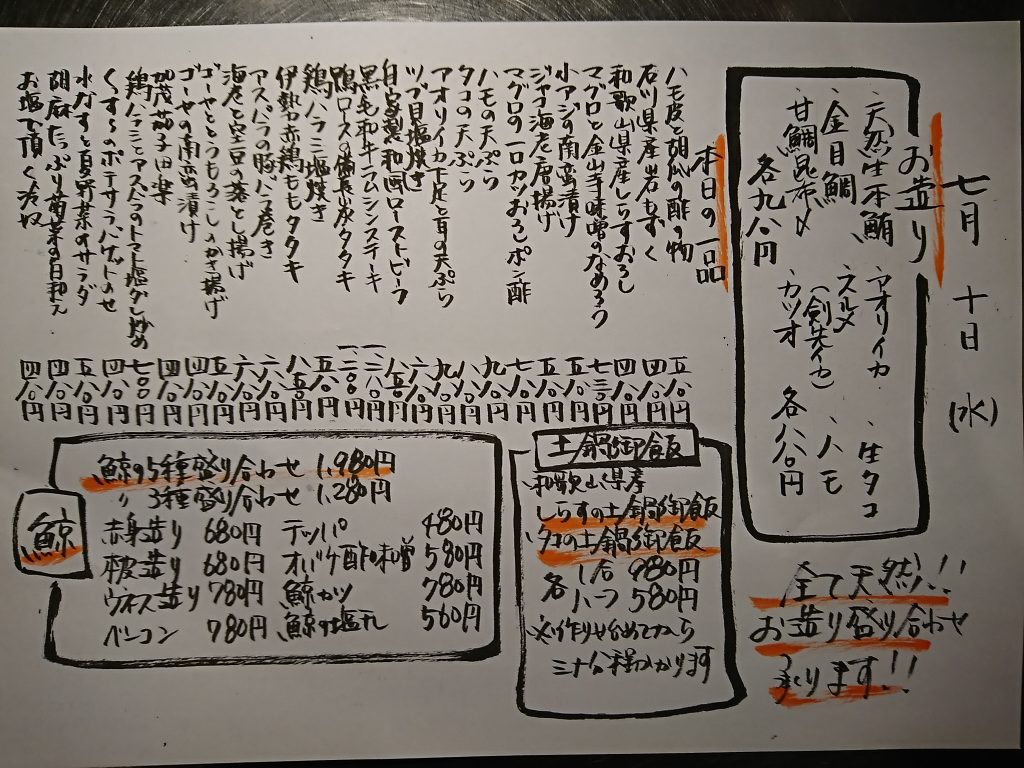 七月十日(水)
お造り
・天然生本鮪 ・アオリイカ ・生タコ
・金目鯛 ・スルメ(剣先イカ) ・ハモ
・甘鯛昆布〆 ・カツオ 各八八〇円
各九八〇円
全て天然!!
お造り盛り合わせ
承ります!!
本日の一品
ハモ皮と胡瓜の酢の物 五八〇円
石川県産岩もずく 四八〇円
和歌山県産しらすおろし 四八〇円
マグロと金山寺味噌のなめろう 七三〇円
小アジの南蛮漬け 五八〇円
ジャコ海老唐揚げ 五八〇円
マグロの一口カツおろしポン酢 七八〇円
ハモの天ぷら 九八〇円
タコの天ぷら 八八〇円
アオリイカ下足と耳の天ぷら 九八〇円
ツブ貝塩焼き 六八〇円
自家製和風ローストビーフ 八五〇円
黒毛和牛ラムシンステーキ 一二八〇円
鴨ロースの備長炭タタキ 一二〇〇円
鶏ハラミ塩焼き 五八〇円
伊勢赤鶏ももタタキ 八五〇円
アスパラの豚バラ巻き 六八〇円
海老と空豆の落とし揚げ 六八〇円
ゴーヤととうもろこしのかき揚げ 五八〇円
ゴーヤの南蛮漬け 四八〇円
加茂茄子田楽 四八〇円
鶏ハラミとアスパラのトマト塩ダレ炒め 七〇〇円
くずしのポテサラバゲットのせ 四八〇円
水ナスと夏野菜のサラダ 五八〇円
胡麻たっぷり菊菜の白和え 四八〇円
お塩で頂く冷奴 四八〇円
土鍋御飯
・和歌山県産
しらすの土鍋御飯
・タコの土鍋御飯
各 1合 980円
ハーフ 580円
※作り始めてから
三十分程かかります
鯨
鯨の5種盛り合わせ 1,980円
〃 3種盛り合わせ 1,280円
赤身造り 680円 テッパ 480円
本皮造り 680円 オバケ酢味噌 580円
ウネス造り 780円 鯨カツ 780円
ベーコン 780円 鯨の塩干し 560円